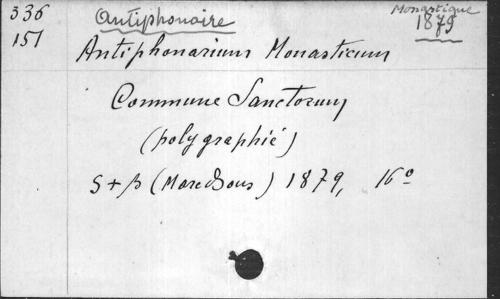 336
151
Antiphonaire
Monastique
1879
Antiphonarium Monasticum
Commune Sanctorum
(polygraphié)
S + B (Maredsous) 1879, 16°